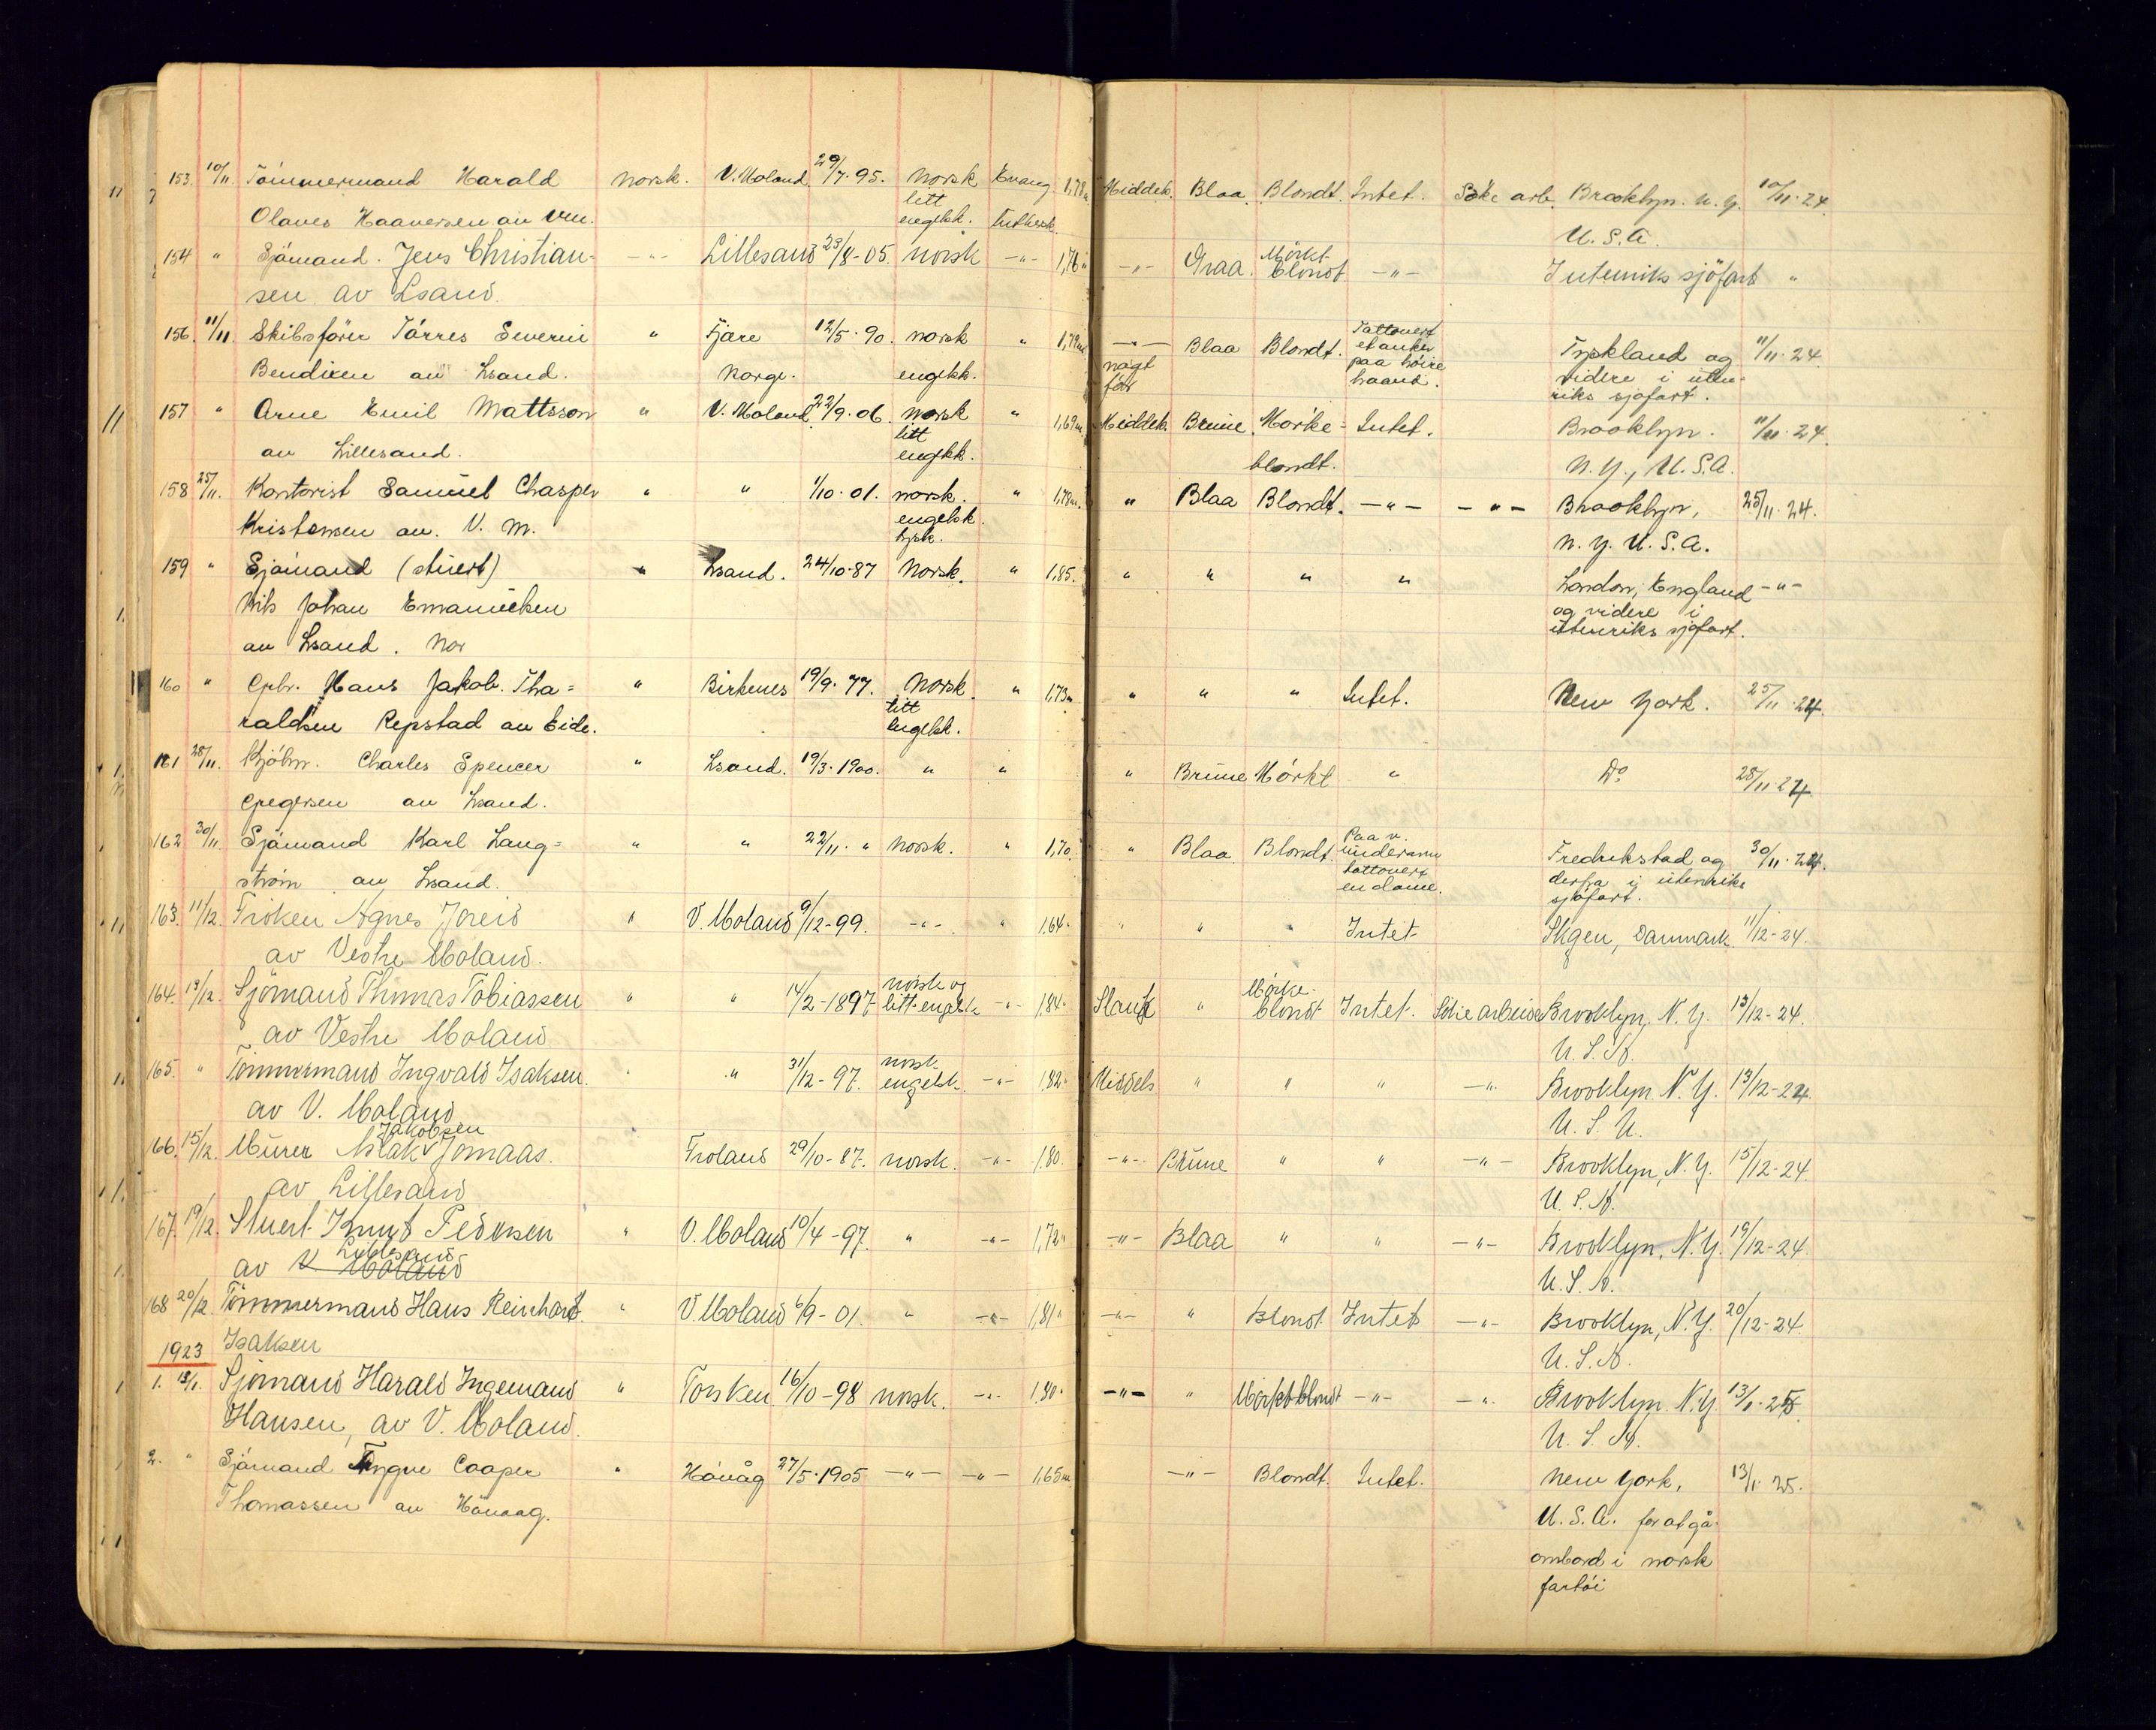 153. 10/11. Tömmermand Harald norsk. V. Moland 29/7. 95. Norsk Evang. 1,78 m Middels. Blaa. Blondt. Intet. Söke arb. Brooklyn. N. Y. 10/11. 24.
Olaves Haaversen av Vm. litt engelsk. luthersk. U. S. A.
154 " Sjömand. Jens Christian- -"- Lillesand 23/8-05. norsk -"- 1,76 " -"- Graa. Mörkt- blondt. -"- Utenriks sjöfart "
sen av Lsand.
156. 11/11. Skibsförer Törres Severin " Fjære 12/5. 90. norsk " 1,79 m -"- Blaa Blondt. Tattovert et anker paa höire haand. Tyskland og 11/11. 24.
Bendixen av Lsand. Norge. engelsk. noget før videre i uten- riks sjøfart.
157 " Arne Emil Mattsson " V. Moland 22/9. 06. norsk " 1,69 m. Middels Brune. Mörke- Intet. Brooklyn. 11/11. 24.
av Lillesand. litt engelsk. blondt. N. Y., U. S. A.
158 25/11. Kontorist Samuel Chasper " " 1/10. 01. norsk. " 1,78 m. " Blaa Blondt. -"- -"- Brooklyn, 25/11. 24.
Kristensen av. V. M. engelsk. tysk. N. Y. U. S. A.
159 " Sjömand (stuert) " Lsand. 24/10. 87 Norsk. " 1,85. " " " " London, England -"-
Nils Johan Emanuelsen og videre i
av Lsand. Nor utenriks sjøfart.
160 " Gbr. Hans Jakob. Tha= " Birkenes 19/9. 77. Norsk. " 1,73 m " " " Intet. New York. 25/11. 24.
raldsen Repstad av Eide. litt engelsk.
161 28/11. Kjöbm. Charles Spencer " Lsand. 19/3. 1900. " " " Brune Mörkt " Do 28/11. 24
Gregersen av Lsand.
162 30/11. Sjömand Karl Lang= " " 22/11. " Norsk. " 1,70. " Blaa. Blondt. Paa v. underarm tattovert en dame. Fredrikstad og 30/11. 24.
ström av Lsand. derfra i utenriks sjöfart.
163. 11/12. Fröken Agnes Joreid " V. Moland 9/12-99. -"- " 1,64. " " " Intet Skgen, Danmark. 11/12-24.
av Vestre Moland.
164. 13/12. Sjömand Thomas Tobiassen " " 14/2-1897 norsk og litt engelsk -"- 1,84. Slank " Mörke- blondt Intet. Söke arbeide Brooklyn, N. Y. 13/12-24.
av Vestre Moland U. S. A.
165. " Tömmermand Ingvald Isaksen. " " 31/12-97. norsk engelsk -"- 1,82. Middels " " " -"- Brooklyn N. Y. 13/12-24
av V. Moland U. S. A.
166. 15/12. Murer Aslak Jakobsen Jomaas. Froland 29/10-87. norsk. -"- 1,80. -"- Brune " " -"- Brooklyn, N. Y. 15/12-24.
av Lillesand U. S. A.
167. 19/12. Stuert Knut Pedersen " V. Moland 10/4-97. " -"- 1,72 " -"- Blaa " " -"- Brooklyn, N. Y. 19/12-24.
av V. Moland Lillesand U. S. A.
168 20/12. Tömmermand Hans Reinhard " V. Moland 6/9-01. " -"- 1,81 " -"- " Blondt Intet -"- Brooklyn, N. Y. 20/12-24.
1923 Isaksen U. S. A.
1. 13/1. Sjömand Harald Ingemand " Torsken 16/10-98 norsk. -"- 1,80. -"- " Mörkt blondt -"- -"- Brooklyn N. Y 13/1. 25.
Hansen, av V. Moland. U. S. A.
2. " Sjömand Trygve Cooper " Hövåg 27/5. 1905 -"- -"- 1,65 m -"- Blondt. Intet. New York, 13/1. 25.
Thomassen av Hövaag. U. S. A. for at gå
ombord i norsk
fartöi